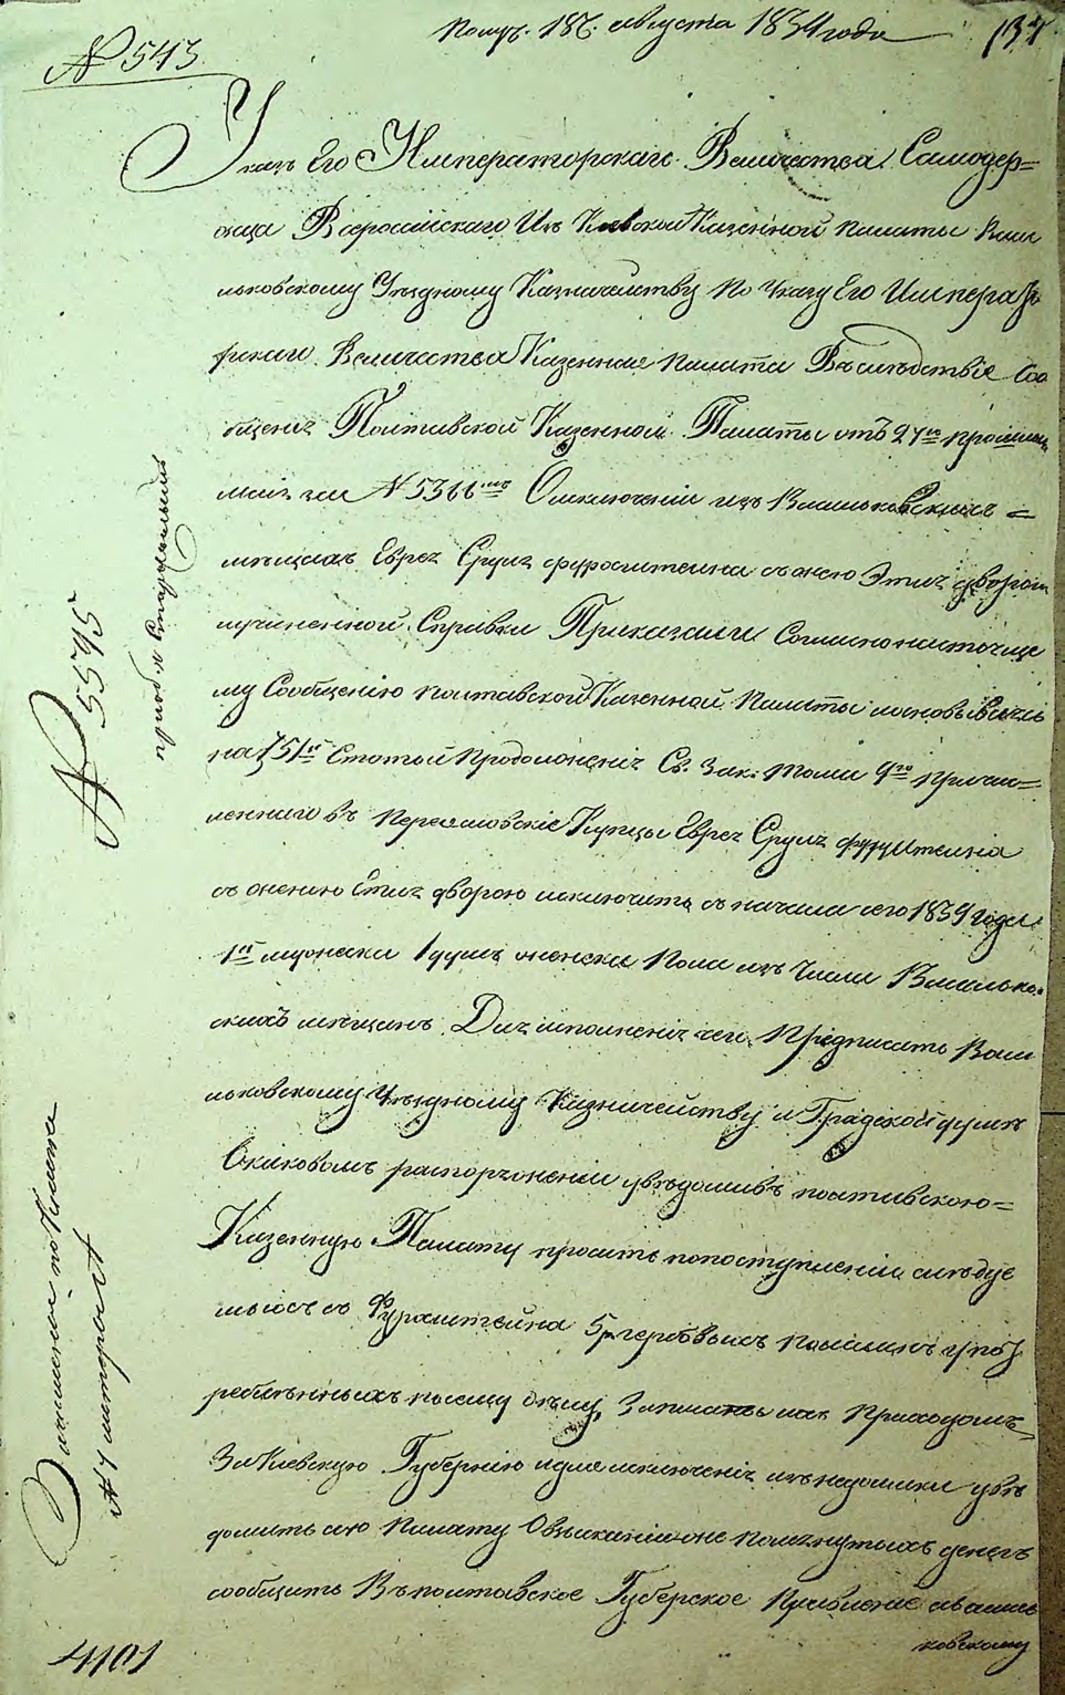 № 543
Получ. 18 августа 1834 года
137
Указъ Его Императорскаго Величества Самодер=
жца Всероссійскаго Изъ Кіевской Казенной Палаты Васи
льковскому Уѣздному Казначейству По Указу Его Императо
рскаго Величества Казенная Палата Въ слѣдствіе Соо
бщенія Полтавской Казенной Палаты отъ 27го прошла
маія за № 5366мъ О исключеніи изъ Васильковскихъ =
мѣщанъ Еврея Сруля съ женою Этлею Дворою
учиненной Справки Приказали Согласно настояще
му Сообщенію Полтавской Казенной Палаты и основываясь
на 751й Статьи Продолженія Св. Зак: Тома 9го причис=
леннаго въ Переяславскіе Купцы Еврея Сруля Фурштейна
съ женою Этлею Дворою исключить съ начала сего 1834 года
1го мужеска 1 душъ женска пола изъ числа Василько=
скихъ мѣщанъ. Для исполненія чего Предписать Васи
льковскому Уѣздному Казначейству и Градской думѣ
О каковомъ распоряженіи увѣдомивъ полтавскую=
Казенную Палату просить по поступленіи слѣдуе
мыхъ съ Фурштейна 5 р гербовыхъ пошлинъ упот
ребленныхъ по сему дѣлу, Записать ихъ Приходомъ
За Кіевскую Губернію и для исключенія изъ недоимки увѣ
домить сію Палату О взысканіи же помянутыхъ денегъ
сообщить Въ полтавское Губерское Правленіе а василь
ковскому
№ 5595
4101